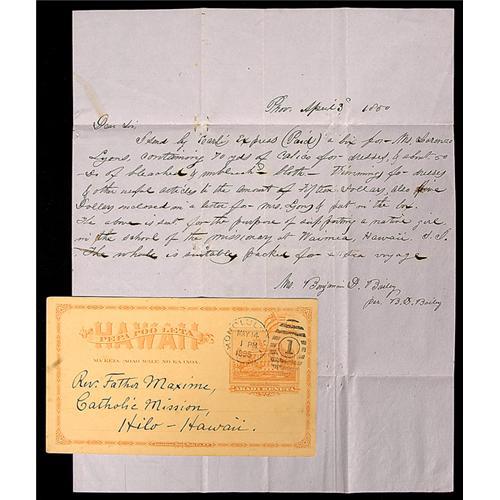 Prov. April 3d 1850
Dear Sir,
I send by Earls Express (Paid) a box for Mr. Lorenzo
Lyons, containing 70 yds of Calico for dresses, & about 50
do of bleached & unbleach cloth - Trimmings for dresses
& other useful articles to the amount of Dollars, also
Dollars inclosed in a letter for Mrs. Lyons & put in the box.
The above is sent for the purpose of supporting a native girl
in the school of the missionary at Waimea, Hawaii. S. I.
The whole is suitably packed for a sea voyage
Mr. Benjamin D. Bailey
per. B. D. Bailey
HAWAII
PEPA POO LETA
MA KEIA AOAO WALE NO KA INOA.
HONOLULU
MAY 14
1 PM
1895
1
AKAHI KENETA
Rev. Father Maxime,
Catholic Mission,
Hilo - Hawaii.